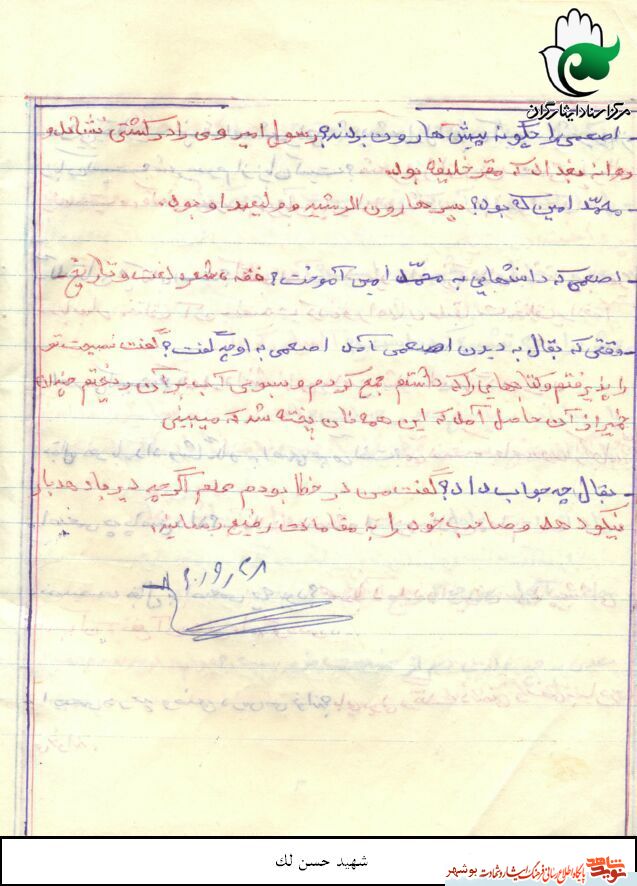 مرکز اسناد ایثارگران
- اصمعی را چگونه پیش هارون بردند؟ رسول امیر وی را در کشتی نشاند و
روانه بغداد که مقر خلیفه بود.
- محمّد امین که بود؟ پسر هارون الرشید و ولیعهد او بود.
- اصمعی که دانشهایی به محمّد امین آموخت؟ فقه، شعر، لغت و تاریخ
- وقتی که بقال به دیدن اصمعی آمد اصمعی به او چه گفت؟ گفت نصیحت تو
را پذیرفتم و کتابهایی را که داشتم جمع کردم و سبوی آب بر آن ریختم چندان
خمیر از آن حاصل آمد که این همه نان پخته شد که میبینی
- بقال چه جواب داد؟ گفت من در خطا بودم علم اگر چه دیر بار دهد بار
نیکو دهد و صاحب خود را به مقامات رفیع برساند.
شهید حسن لك
نوید شاهد
پایگاه اطلاع رسانی فرهنگ ایثار و شهادت بوشهر